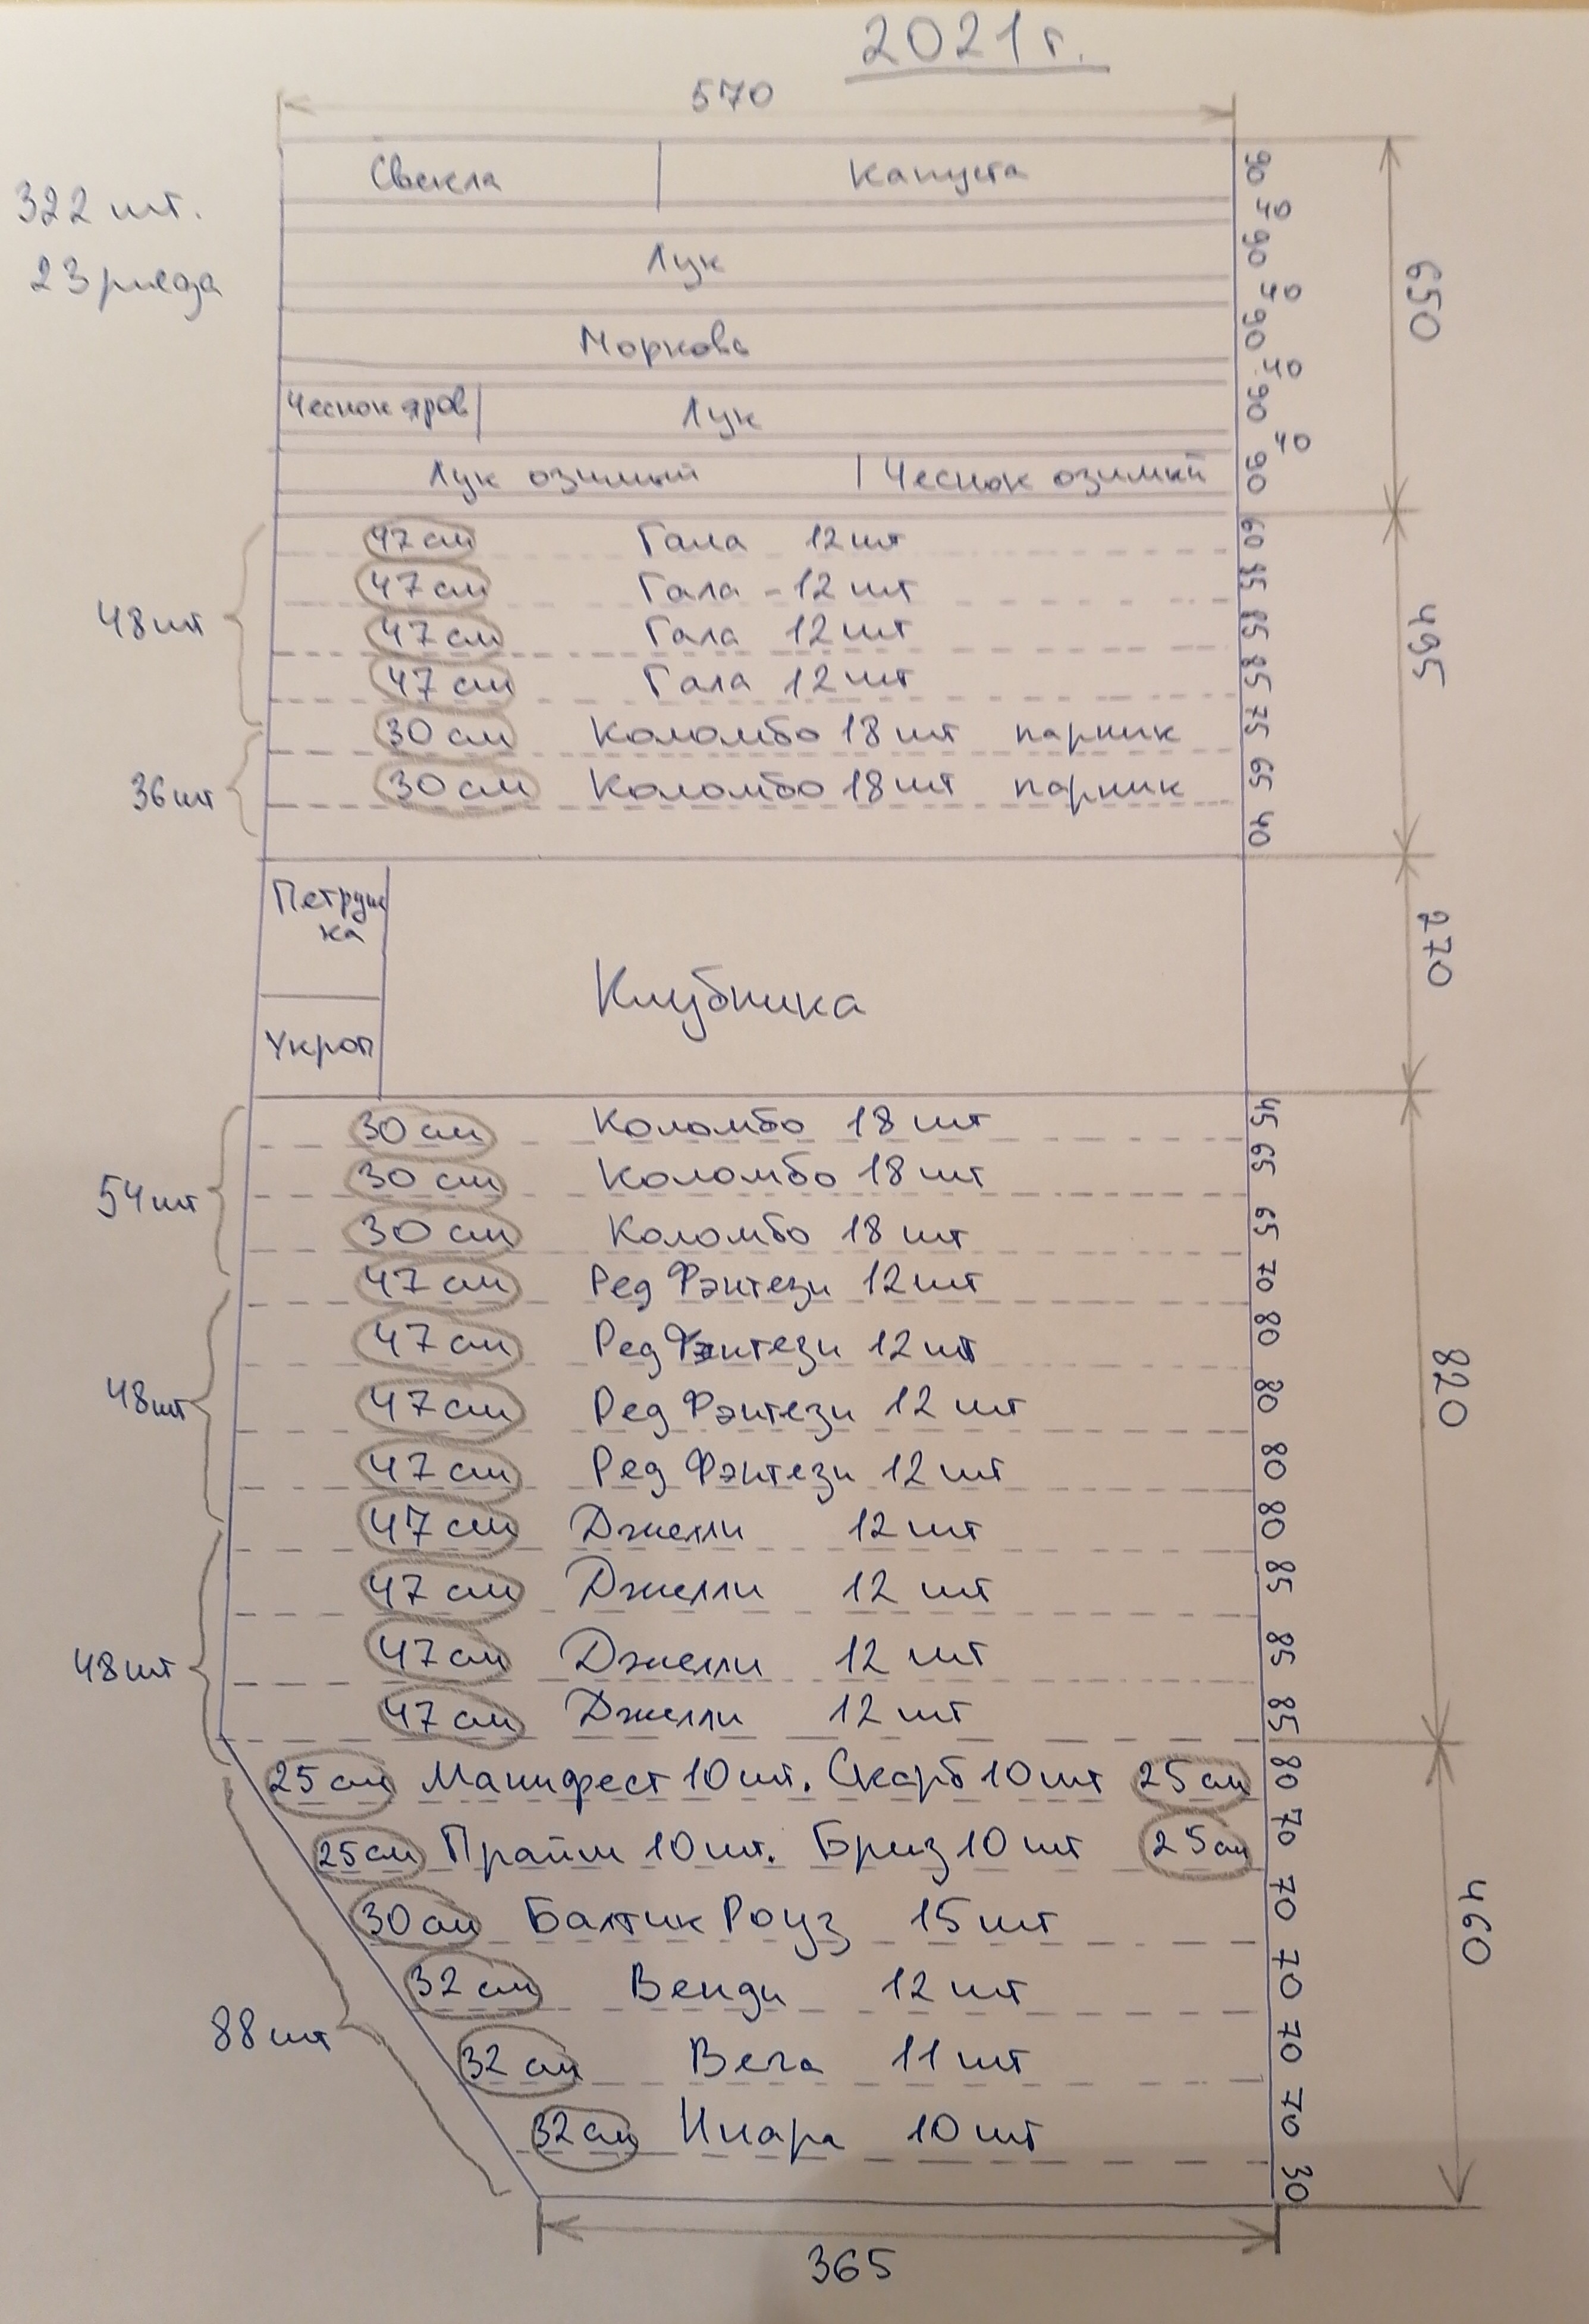 2021 г.
570
322 шт.
23 ряда
Свекла Капуста 90
40
Лук 90
40
Морковь 90
40
Чеснок яров Лук 90
40
Лук озимый Чеснок озимый 90
650
47 см Гала 12 шт 60
47 см Гала - 12 шт 85
47 см Гала 12 шт 85
47 см Гала 12 шт 85
48 шт
30 см Коломбо 18 шт парник 75
30 см Коломбо 18 шт парник 65
36 шт
40
495
Петруш
ка
Укроп
Клубника
270
30 см Коломбо 18 шт 45
30 см Коломбо 18 шт 65
30 см Коломбо 18 шт 65
54 шт
47 см Ред Фэнтези 12 шт 70
47 см Ред Фэнтези 12 шт 80
47 см Ред Фэнтези 12 шт 80
47 см Ред Фэнтези 12 шт 80
48 шт
47 см Джелли 12 шт 80
47 см Джелли 12 шт 85
47 см Джелли 12 шт 85
47 см Джелли 12 шт 85
48 шт
820
25 см Манифест 10 шт. Скарб 10 шт 25 см 80
25 см Прайм 10 шт. Бриз 10 шт 25 см 70
30 см Балтик Роуз 15 шт 70
32 см Венди 12 шт 70
32 см Вега 11 шт 70
32 см Инара 10 шт 70
88 шт
30
460
365